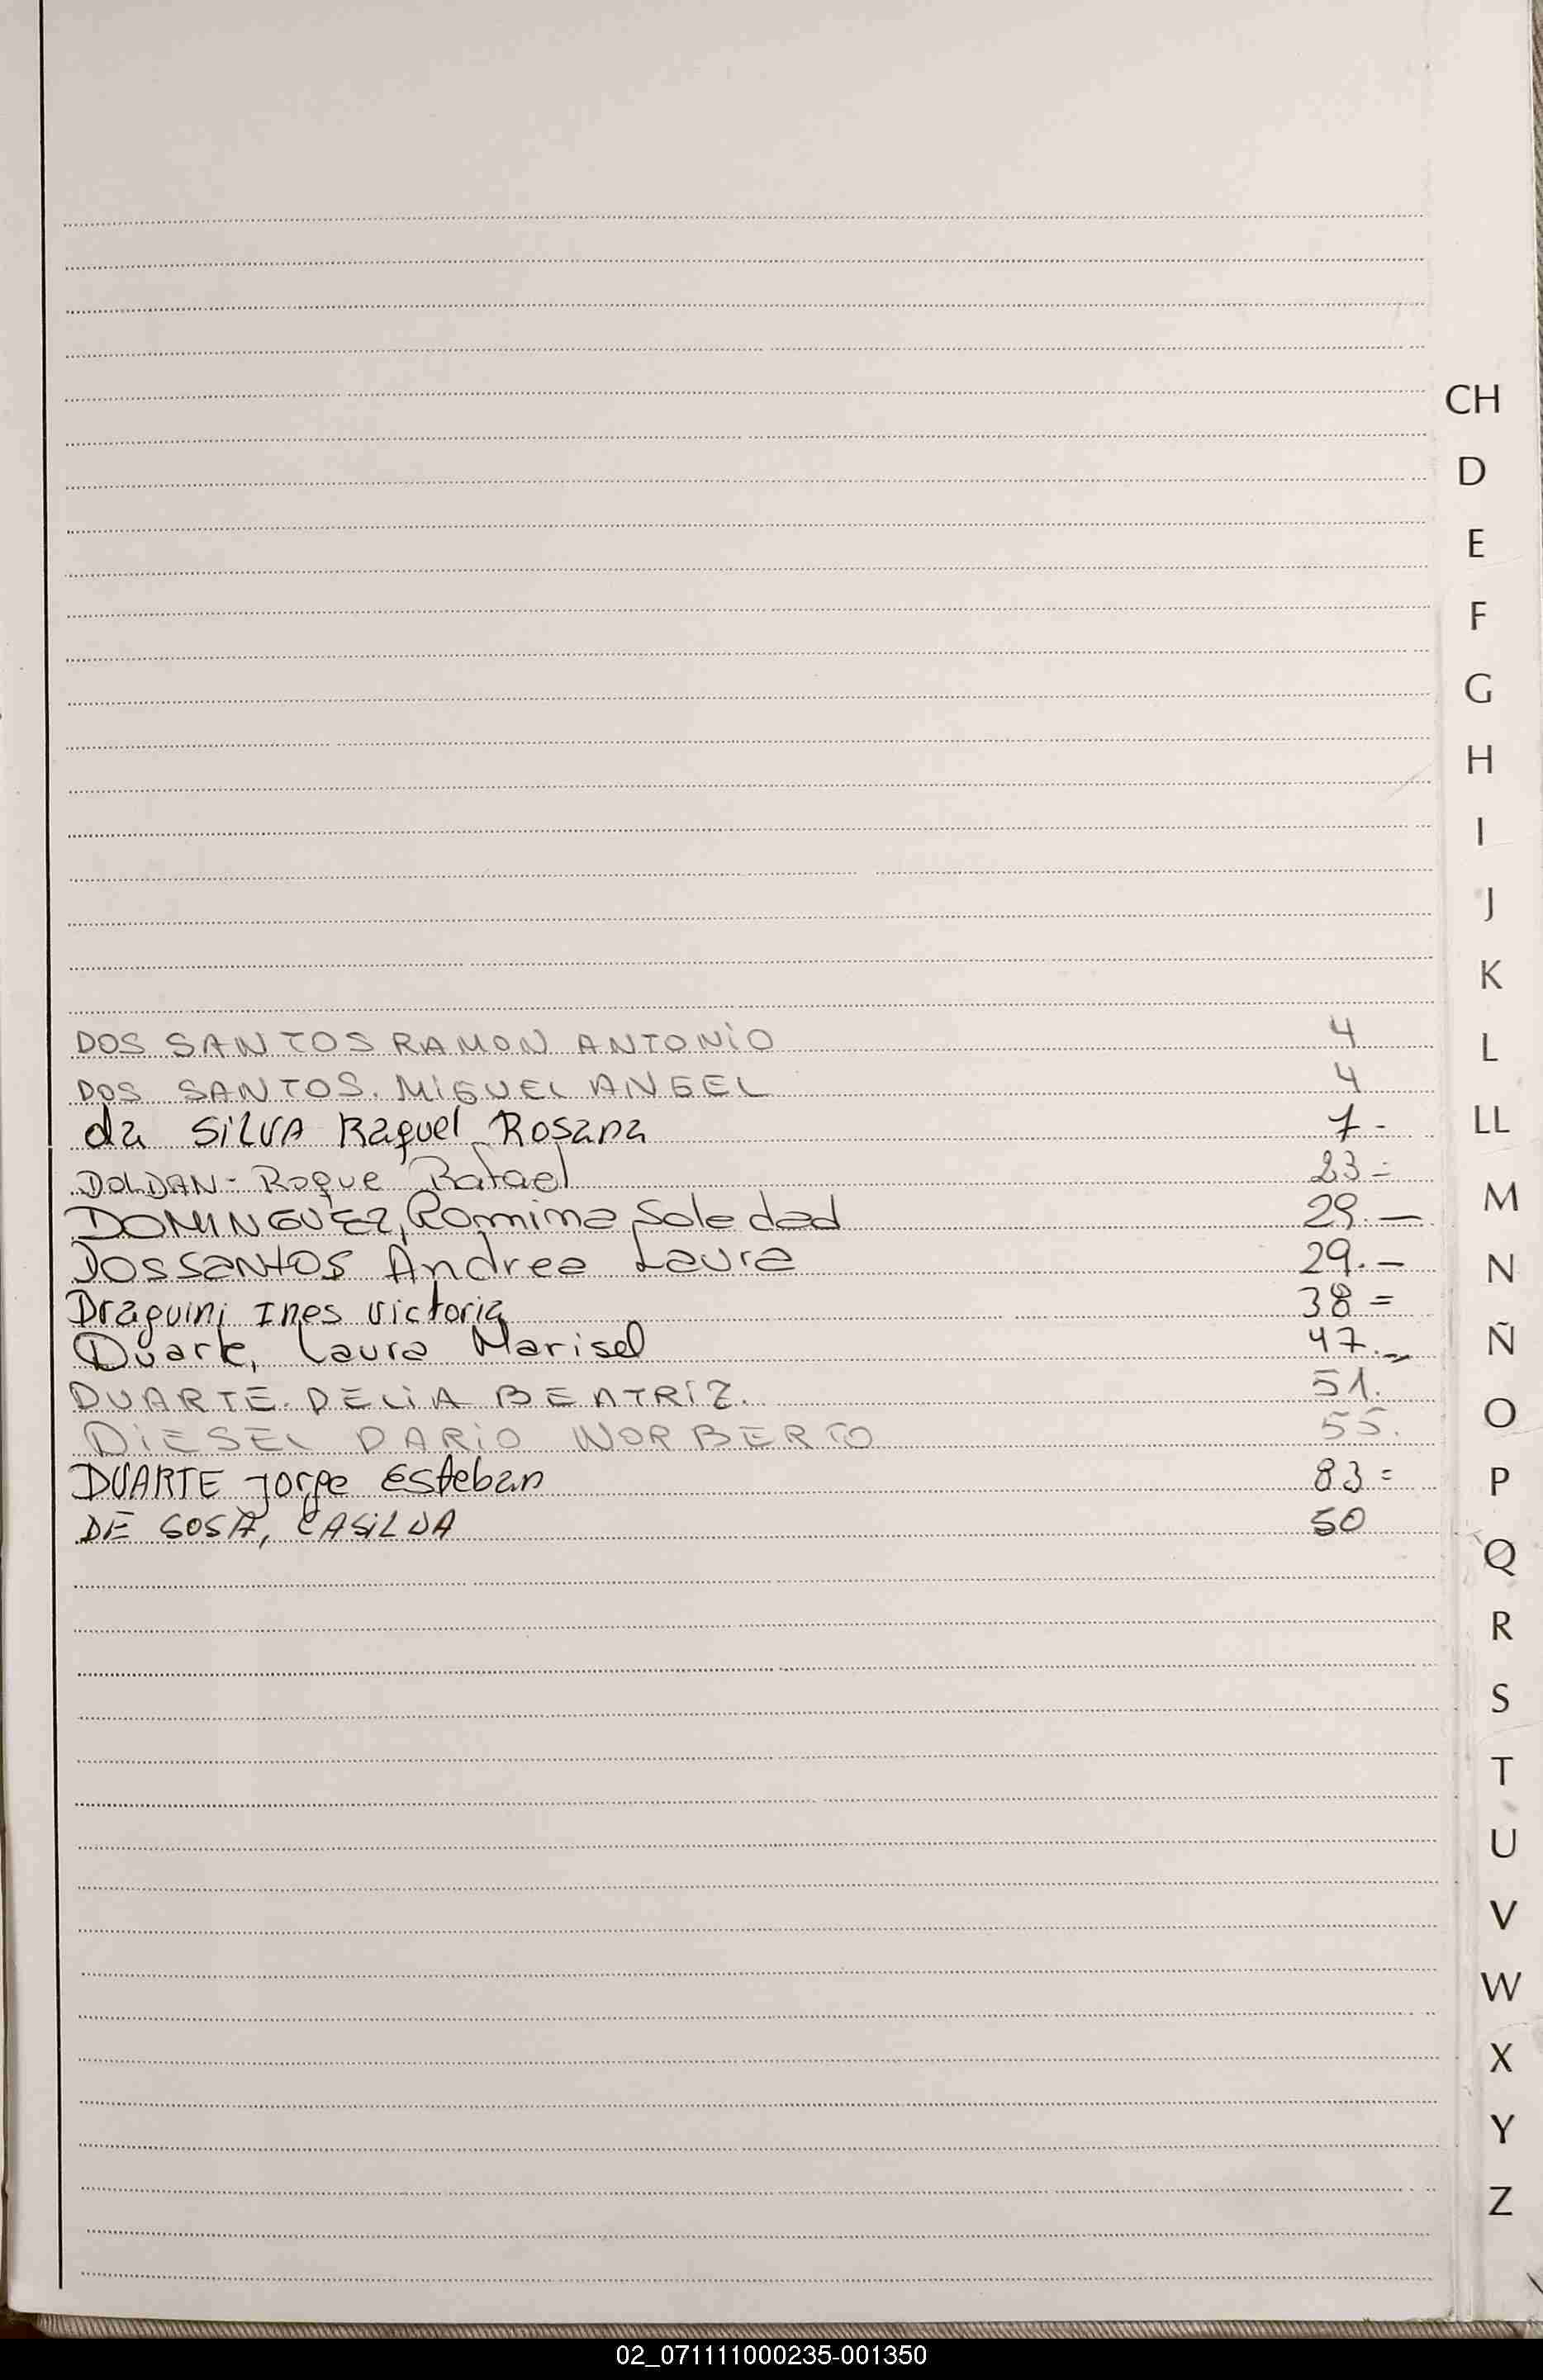 CH
D
E
F
G
H
I
J
K
DOS SANTOS RAMON ANTONiO 4
L
DOS SANTOS. MiGUEL ANGEL 4
da SiLVA Raquel Rosana 7-
LL
DOLDAN- Roque Rafael 23=
M
DOMINGUEZ, Romina Soledad 29.—
DOSSANTOS Andrea Laura 29.—
N
Draguini Ines Victoria 38=
Duarte, Laura Marisel 47.—
Ñ
DUARTE. DELiA BEATRiZ. 51.
O
DiESEL DARiO NORBERTO 55.
DUARTE Jorge Esteban 83=
P
DE SOSA, CASiLDA 50
Q
R
S
T
U
V
W
X
Y
Z
02_071111000235-001350